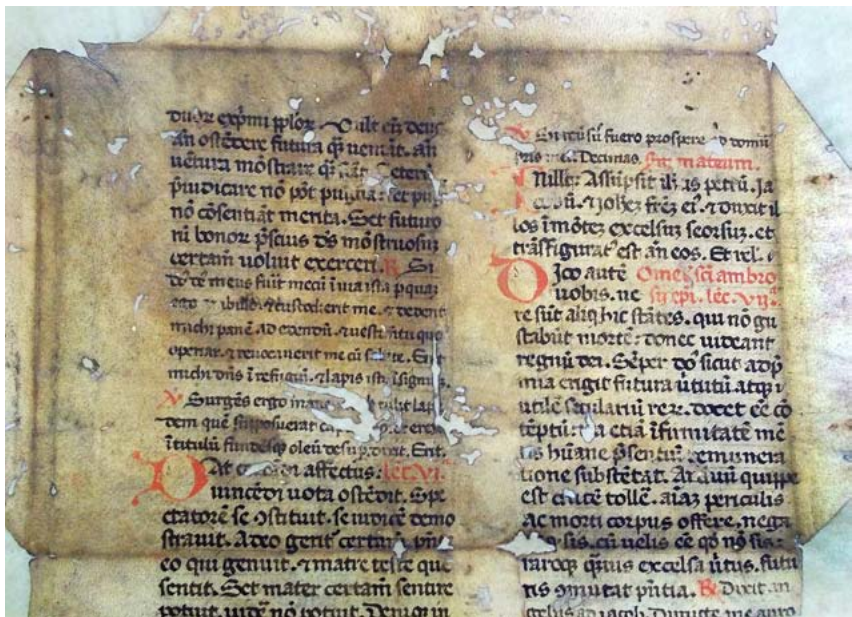 duoꝝ exp̄mi ꝓloꝝ. Uult em̄ deus
an ostēdere futura qͣ̄ veniāt. an
uētura mōstrare qͣ̄
p̄iudicare nō pōt pugna:
nō cōsentiāt merita. Set futuro
bonoꝝ p̄scius dˢ mōstruosuꝫ
certam̄ uoluit exerceri. R Si
meus fuit mecū ī uia ista ꝑ quaꝫ
ego ambulo. ⁊ custodierit me. ⁊ dederit
michi panē ad edendū. ⁊ uestim̄tū quo
operiar. ⁊ reuocauerit me cū salute. Erit
michi dn̄s ī refugiū. ⁊ lapis iste ī signuꝫ.
V Surgēs ergo mane tulit lapi
dem quē supposuerat capiti erexit
ī titulū fundēsqꝫ oleū desuꝑ. dixit. Erit.
Dat affectus: lēc. vi.
uincēdi uota ostēdit. Spe
ctatorē se ↄstituit. se iudicē demo
strauit. Adeo gerit certam̄. p̄nte
eo qui genuit. ⁊ matre teste que
sentit. Set mater certam̄ sentire
potuit. uidē nō potuit. Deniqꝫ in
V Si reūsꝰ fuero prospere ad domū
pris mei. Decimas. scd̄m mateum.
In illo: Assūpsit iħs petrū. Ja
cobū. ⁊ iohēꝫ frēꝫ eiꝰ. ⁊ duxit il
los ī mōteꝫ excelsuꝫ seorsuꝫ. et
trāsfiguratꝰ est an̄ eos. Et rel.
Dico autē Omel. sc̄i ambro
uobis. ue sij epi. lēc. vij.
re sūt aliqͥ hic stātes. qui nō gu
stabūt mortē: donec uideant
regnū dei. Sēper dn̄s sicut ad p̄
mia erigit futura ūtutū atqꝫ
utile seculariū reꝝ. docet eē cō
tēptū: ita etiā īfirmitatē mē
tis hūane p̄sentiū remunera
tione substētat. Arduū quippe
est crucē tollē. aīaꝫ periculis
ac morti corpus offere, nega
sis. cū uelis eē qͦ nō sis:
raroqꝫ qͣ̄uis excelsa ūtus. futu
ris ↄmutat p̄ntia. R Dixit an
gelus ad iacob. Dimitte me auro